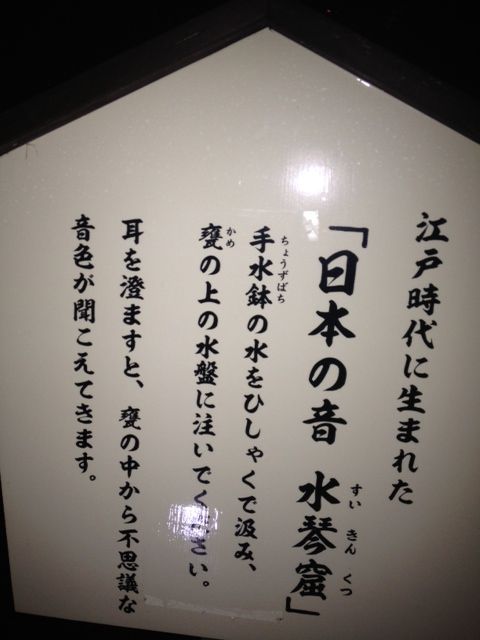 江戸時代に生まれた
「日本の音 水琴窟」
すいきんくつ
手水鉢の水をひしゃくで汲み、
ちょうずばち
甕の上の水盤に注いでください。
かめ
耳を澄ますと、甕の中から不思議な
音色が聞こえてきます。